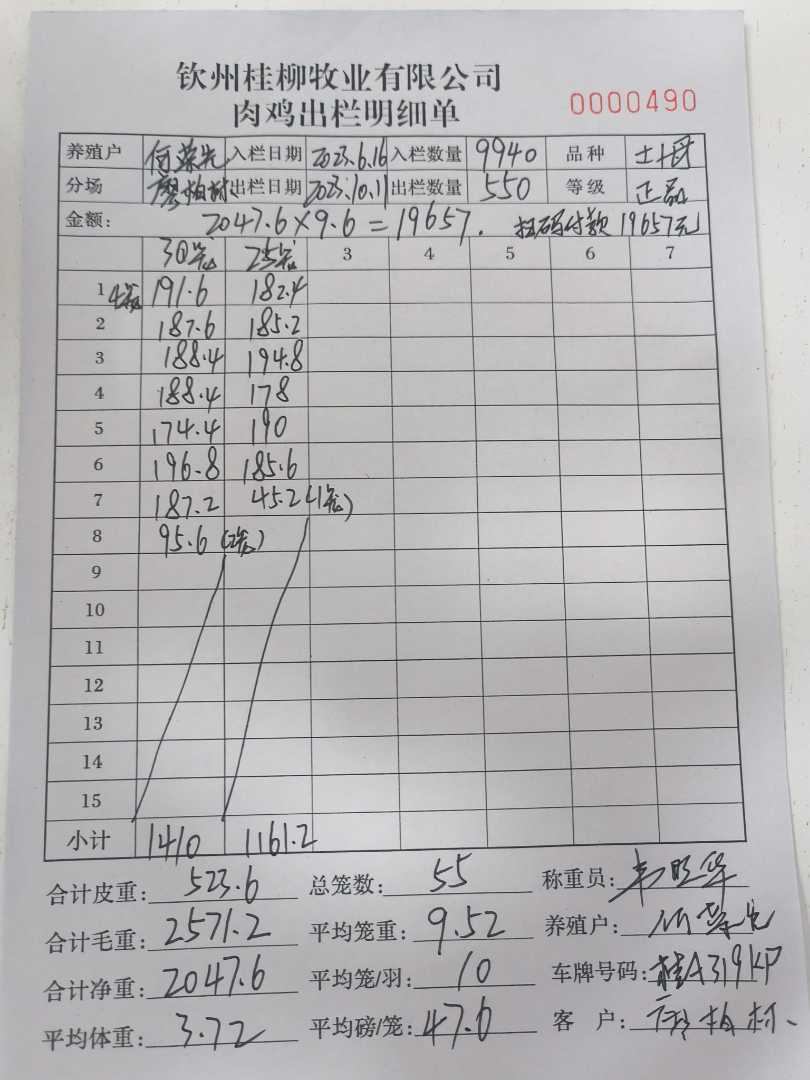 钦州桂柳牧业有限公司
肉鸡出栏明细单 0000490
养殖户 何荣先 入栏日期 2023.6.16 入栏数量 9940 品种 土2母
分场 廖柏材 出栏日期 2023.10.11 出栏数量 550 等级 正品
金额: 2047.6×9.6=19657. 扫码付款19657元
30笼 25笼 3 4 5 6 7
1 4笼 191.6 182.4
2 187.6 185.2
3 188.4 194.8
4 188.4 178
5 174.4 190
6 196.8 185.6
7 187.2 45.2(1笼)
8 95.6(2笼)
9
10
11
12
13
14
15
小计 1410 1161.2
合计皮重: 523.6 总笼数: 55 称重员: 韦旺华
合计毛重: 2571.2 平均笼重: 9.52 养殖户: 何荣先
合计净重: 2047.6 平均笼/羽: 10 车牌号码: 桂A319KP
平均体重: 3.72 平均磅/笼: 47.0 客 户: 廖柏材